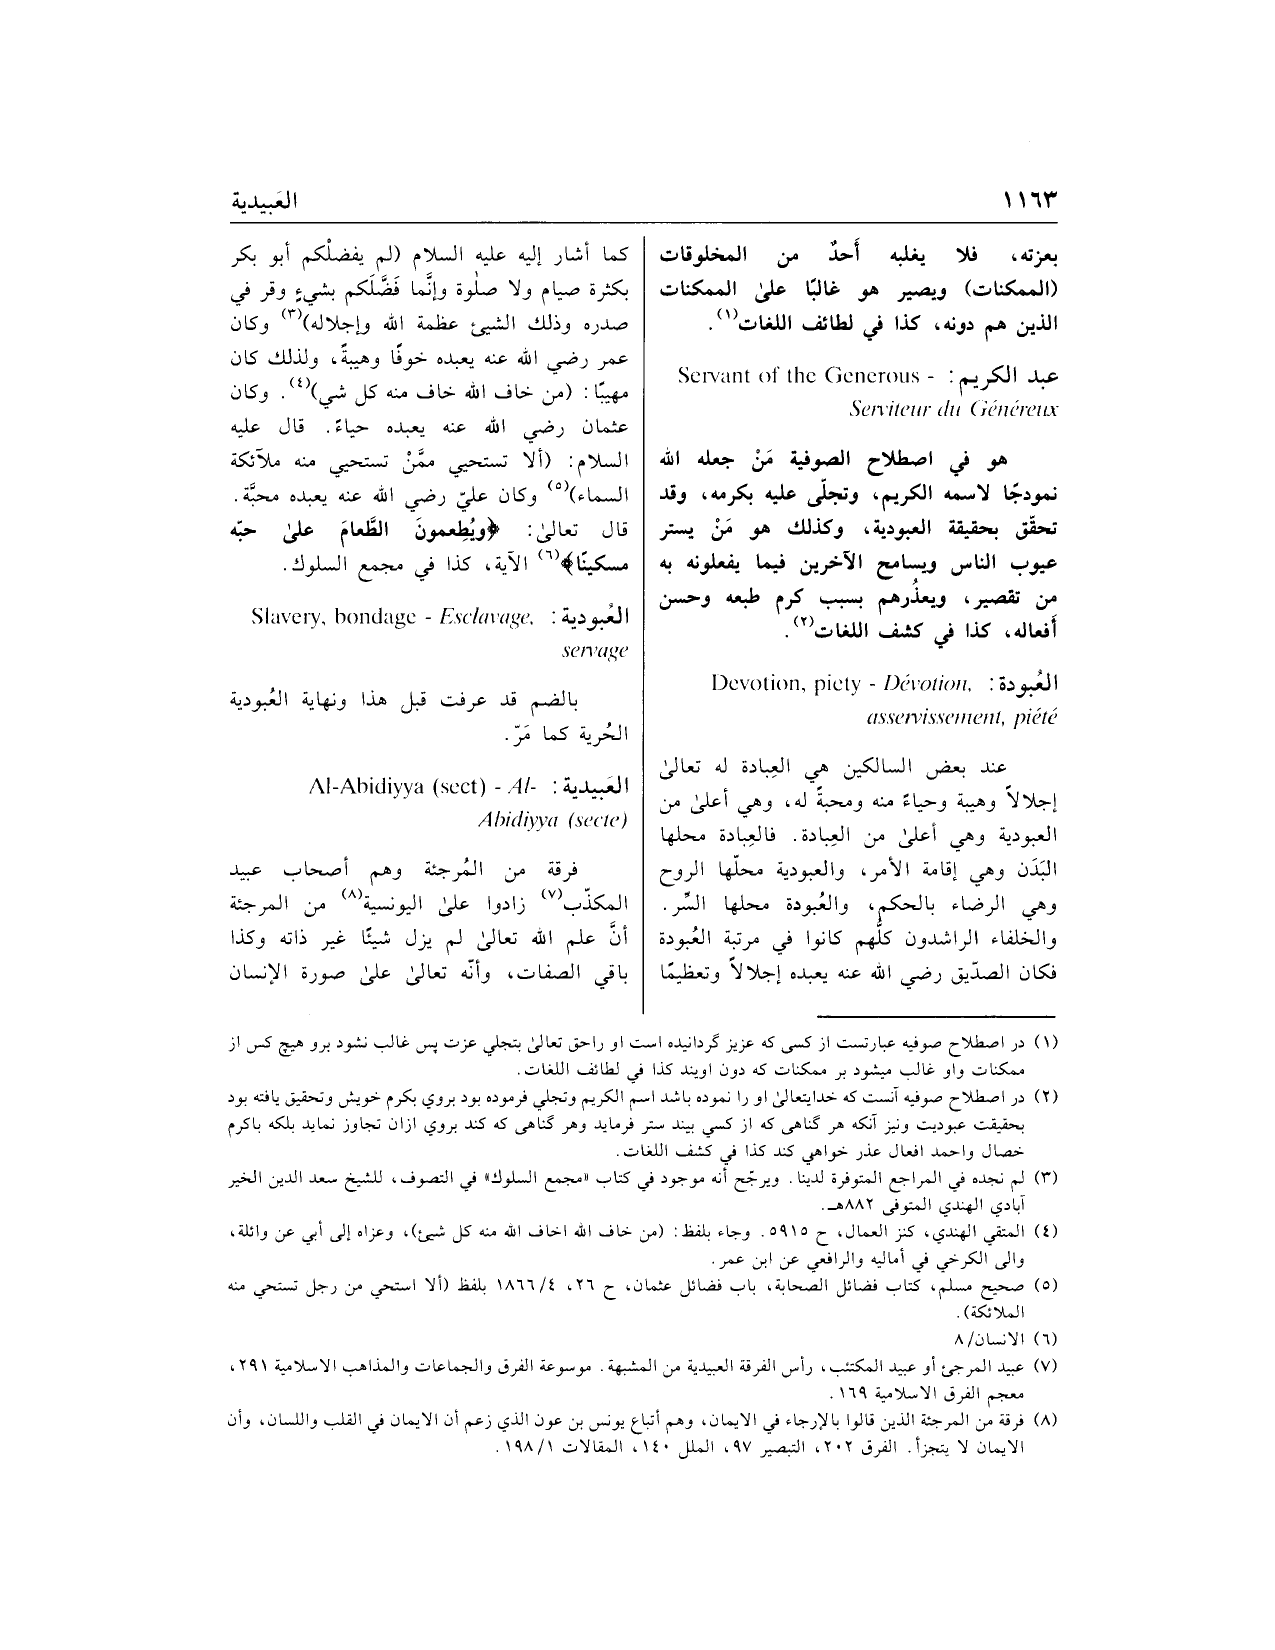 ١١٦٣
العَبيدية
بعزته، فلا يغلبه أَحدٌ من المخلوقات
(الممكنات) ويصير هو غالبًا علىٰ الممكنات
الذين هم دونه، كذا في لطائف اللغات(١).
عبد الكريم: Servant of the Generous -
Serviteur du Généreux
هو في اصطلاح الصوفية مَنْ جعله الله
نمودجًا لاسمه الكريم، وتجلّى عليه بكرمه، وقد
تحقّق بحقيقة العبودية، وكذلك هو مَنْ يستر
عيوب الناس ويسامح الآخرين فيما يفعلونه به
من تقصير، ويعذُرهم بسبب كرم طبعه وحسن
أفعاله، كذا في كشف اللغات(٢).
العُبودة: Devotion, piety - Dévotion,
asservissement, piété
عند بعض السالكين هي العِبادة له تعالىٰ
إجلالاً وهيبة وحياءً منه ومحبةً له، وهي أعلىٰ من
العبودية وهي أعلىٰ من العِبادة. فالعِبادة محلها
البَدَن وهي إقامة الأمر، والعبودية محلّها الروح
وهي الرضاء بالحكم، والعُبودة محلها السِّر.
والخلفاء الراشدون كلُّهم كانوا في مرتبة العُبودة
فكان الصدّيق رضي الله عنه يعبده إجلالاً وتعظيمًا
كما أشار إليه عليه السلام (لم يفضلْكم أبو بكر
بكثرة صيام ولا صلٰوة وإنَّما فَضَّلَكم بشيءٍ وقر في
صدره وذلك الشيئ عظمة الله وإجلاله)(٣) وكان
عمر رضي الله عنه يعبده خوفًا وهيبةً، ولذلك كان
مهيبًا: (من خاف الله خاف منه كل شي)(٤). وكان
عثمان رضي الله عنه يعبده حياءً. قال عليه
السلام: (ألا تستحيي ممَّنْ تستحيي منه ملآئكة
السماء)(٥) وكان عليّ رضي الله عنه يعبده محبَّة.
قال تعالىٰ: ﴿ويُطعمونَ الطَّعامَ علىٰ حبّه
مسكينًا﴾(٦) الآية، كذا في مجمع السلوك.
العُبودية: Slavery, bondage - Esclavage,
servage
بالضم قد عرفت قبل هذا ونهاية العُبودية
الحُرية كما مَرّ.
العَبيدية: Al-Abidiyya (sect) - Al-
Abidiyya (secte)
فرقة من المُرجئة وهم أصحاب عبيد
المكذّب(٧) زادوا علىٰ اليونسية(٨) من المرجئة
أنَّ علم الله تعالىٰ لم يزل شيئًا غير ذاته وكذا
باقي الصفات، وأنّه تعالىٰ علىٰ صورة الإنسان
(١) در اصطلاح صوفيه عبارتست از كسى كه عزيز گردانيده است او راحق تعالىٰ بتجلي عزت پس غالب نشود برو هيچ كس از
ممكنات واو غالب ميشود بر ممكنات كه دون اويند كذا في لطائف اللغات.
(٢) در اصطلاح صوفيه آنست كه خدايتعالىٰ او را نموده باشد اسم الكريم وتجلي فرموده بود بروي بكرم خويش وتحقيق يافته بود
بحقيقت عبوديت ونيز آنكه هر گناهى كه از كسي بيند ستر فرمايد وهر گناهى كه كند بروي ازان تجاوز نمايد بلكه باكرم
خصال واحمد افعال عذر خواهي كند كذا في كشف اللغات.
(٣) لم نجده في المراجع المتوفرة لدينا. ويرجّح أنه موجود في كتاب «مجمع السلوك» في التصوف، للشيخ سعد الدين الخير
آبادي الهندي المتوفى ٨٨٢هـ.
(٤) المتقي الهندي، كنز العمال، ح ٥٩١٥. وجاء بلفظ: (من خاف الله اخاف الله منه كل شيئ)، وعزاه إلى أبي عن واثلة،
والى الكرخي في أماليه والرافعي عن ابن عمر.
(٥) صحيح مسلم، كتاب فضائل الصحابة، باب فضائل عثمان، ح ٢٦، ١٨٦٦/٤ بلفظ (ألا استحي من رجل تستحي منه
الملائكة).
(٦) الانسان/٨
(٧) عبيد المرجئ أو عبيد المكتئب، رأس الفرقة العبيدية من المشبهة. موسوعة الفرق والجماعات والمذاهب الاسلامية ٢٩١،
معجم الفرق الاسلامية ١٦٩.
(٨) فرقة من المرجئة الذين قالوا بالإرجاء في الايمان، وهم أتباع يونس بن عون الذي زعم أن الايمان في القلب واللسان، وأن
الايمان لا يتجزأ. الفرق ٢٠٢، التبصير ٩٧، الملل ١٤٠، المقالات ١٩٨/١.